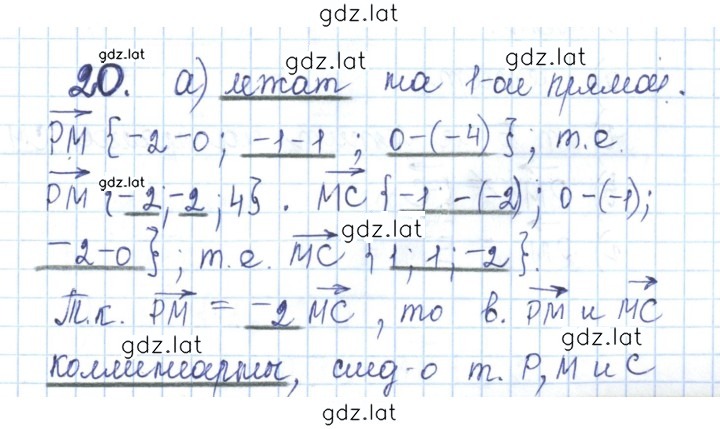 gdz.lat
gdz.lat gdz.lat gdz.lat
20. а) лежат на 1-ой прямой.
PM {-2-0; -1-1; 0-(-4)}; т.е.
gdz.lat
PM {-2;-2;4}. MC {-1-(-2); 0-(-1);
gdz.lat
-2-0}; т.е. MC {1;1;-2}.
Т.к. PM = -2 MC, то в. PM и MC
gdz.lat gdz.lat
коллинеарны, след-о т. P, M и C
gdz.lat